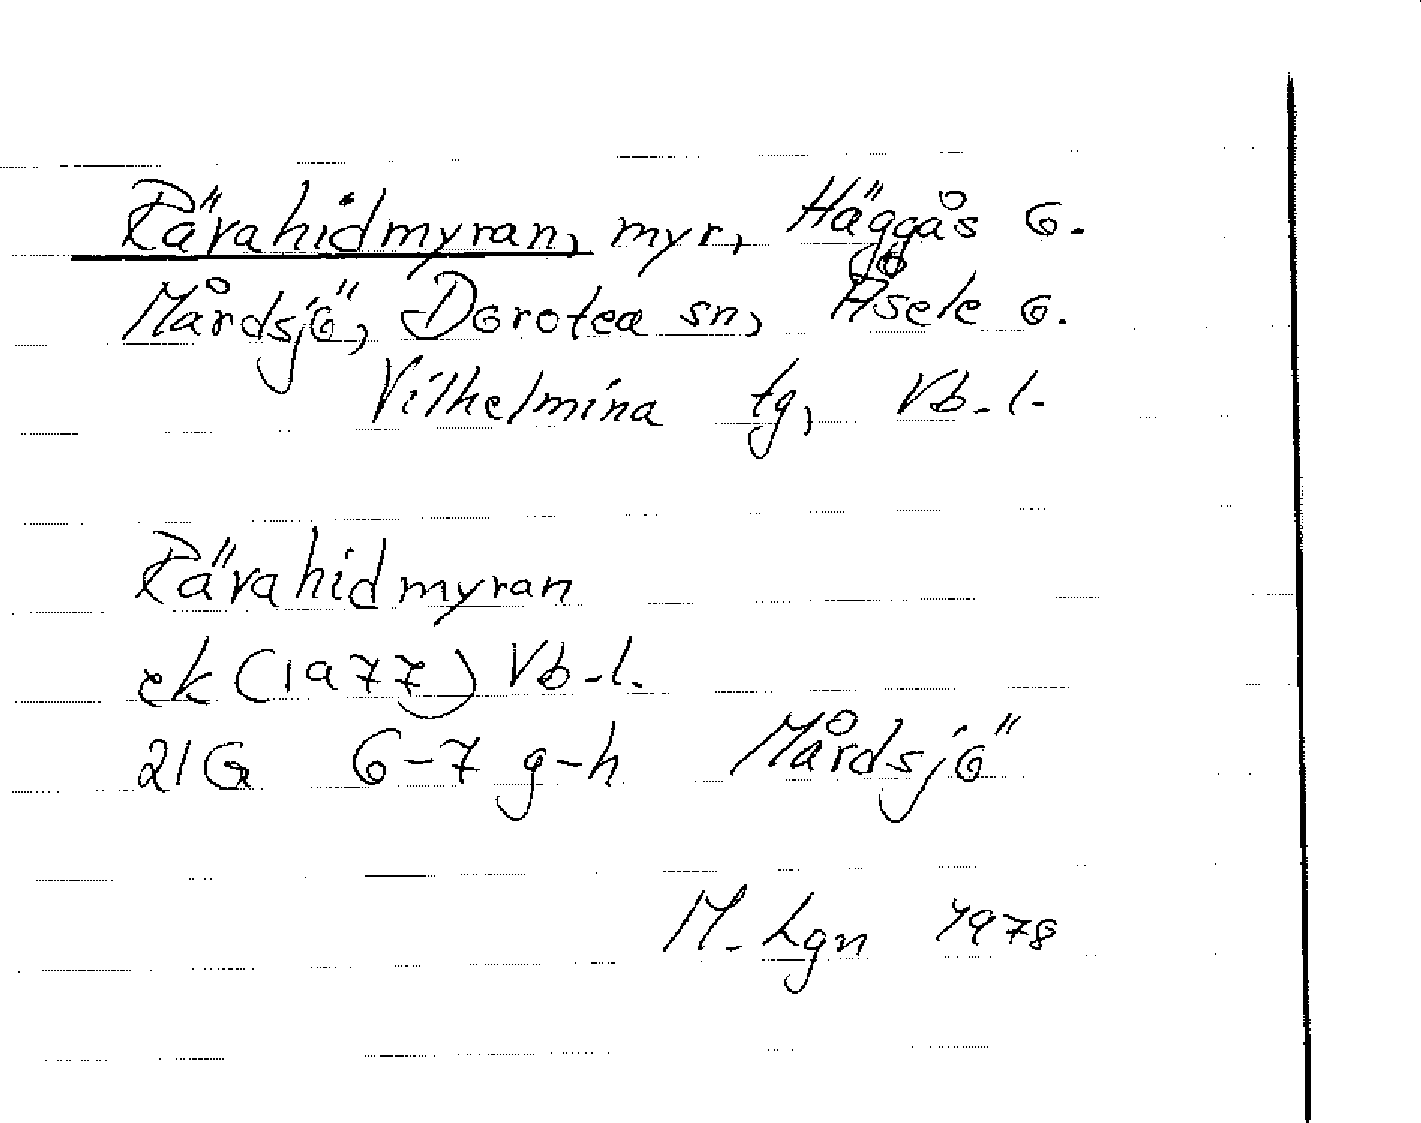 Rävahidmyran, myr, Häggås o.
Mårdsjö, Dorotea sn, Åsele o.
Vilhelmina tg, Vb. l.
Rävahidmyran
ek (1977) Vb. l.
21G 6-7 g-h Mårdsjö
M. Lgn 1978